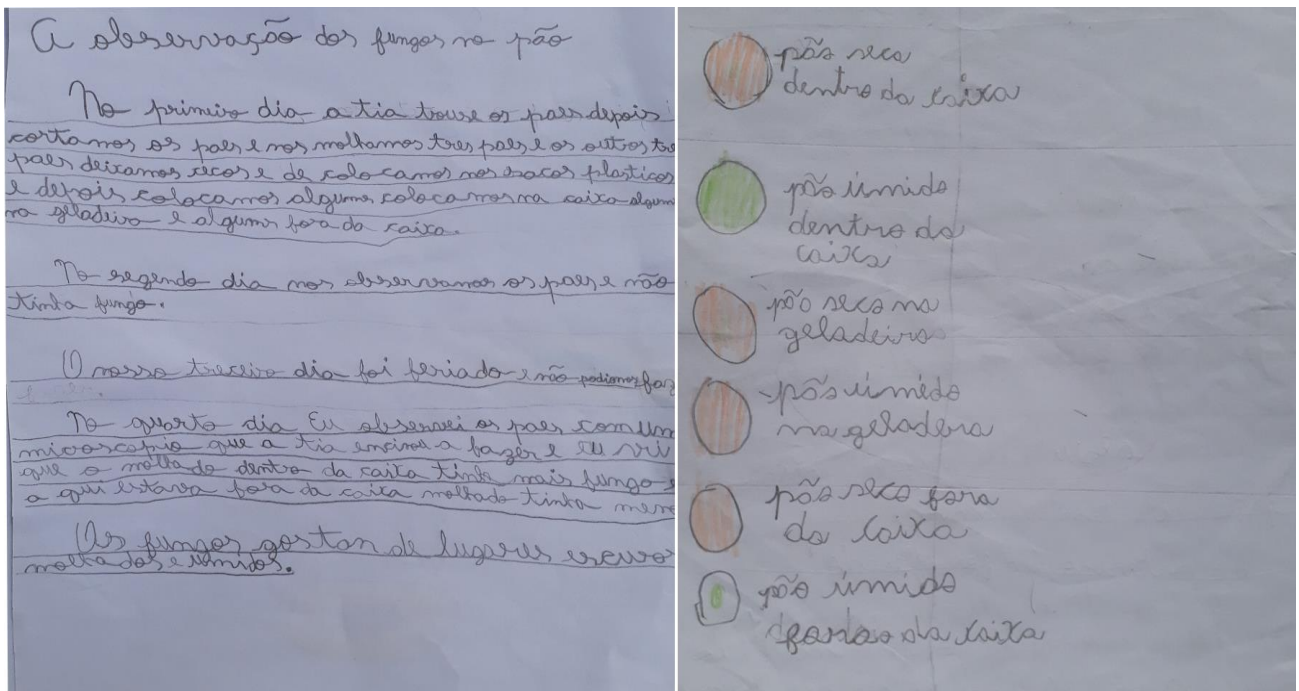 A observação dos fungos no pão
No primeiro dia a tia trouse os paes depois
cortamos os paes e nos molhamos tres paes e os outros tre
paes deixamos secos e de colocamos nos sacos plasticos
e depois colocamos alguns colocamos na caixa algum
na geladeira e alguns fora da caixa.
No segendo dia nos observamos os paes e não
tinha fungo.
O nosso treceiro dia foi feriado e não podiamos faz
No quarto dia Eu observei os paes com um
micoscopio que a tia encinou a fazer e eu vi
que o molhado dentro da caixa tinha mais fungo e
a qui estava fora da caixa molhado tinha meno
Os fungos gostan de lugares escuro
molhados e umidos.
pão seco
dentro da caixa
pão úmido
dentro da
caixa
pão seco na
geladeira
pão úmido
na geladera
pão seco fora
da caixa
pão úmido
da caixa